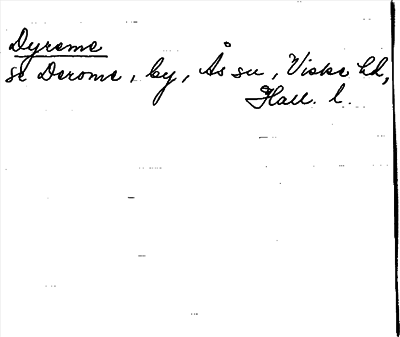 Dyreme
se Derome, by, Ås sn, Viske hd,
Hall. l.